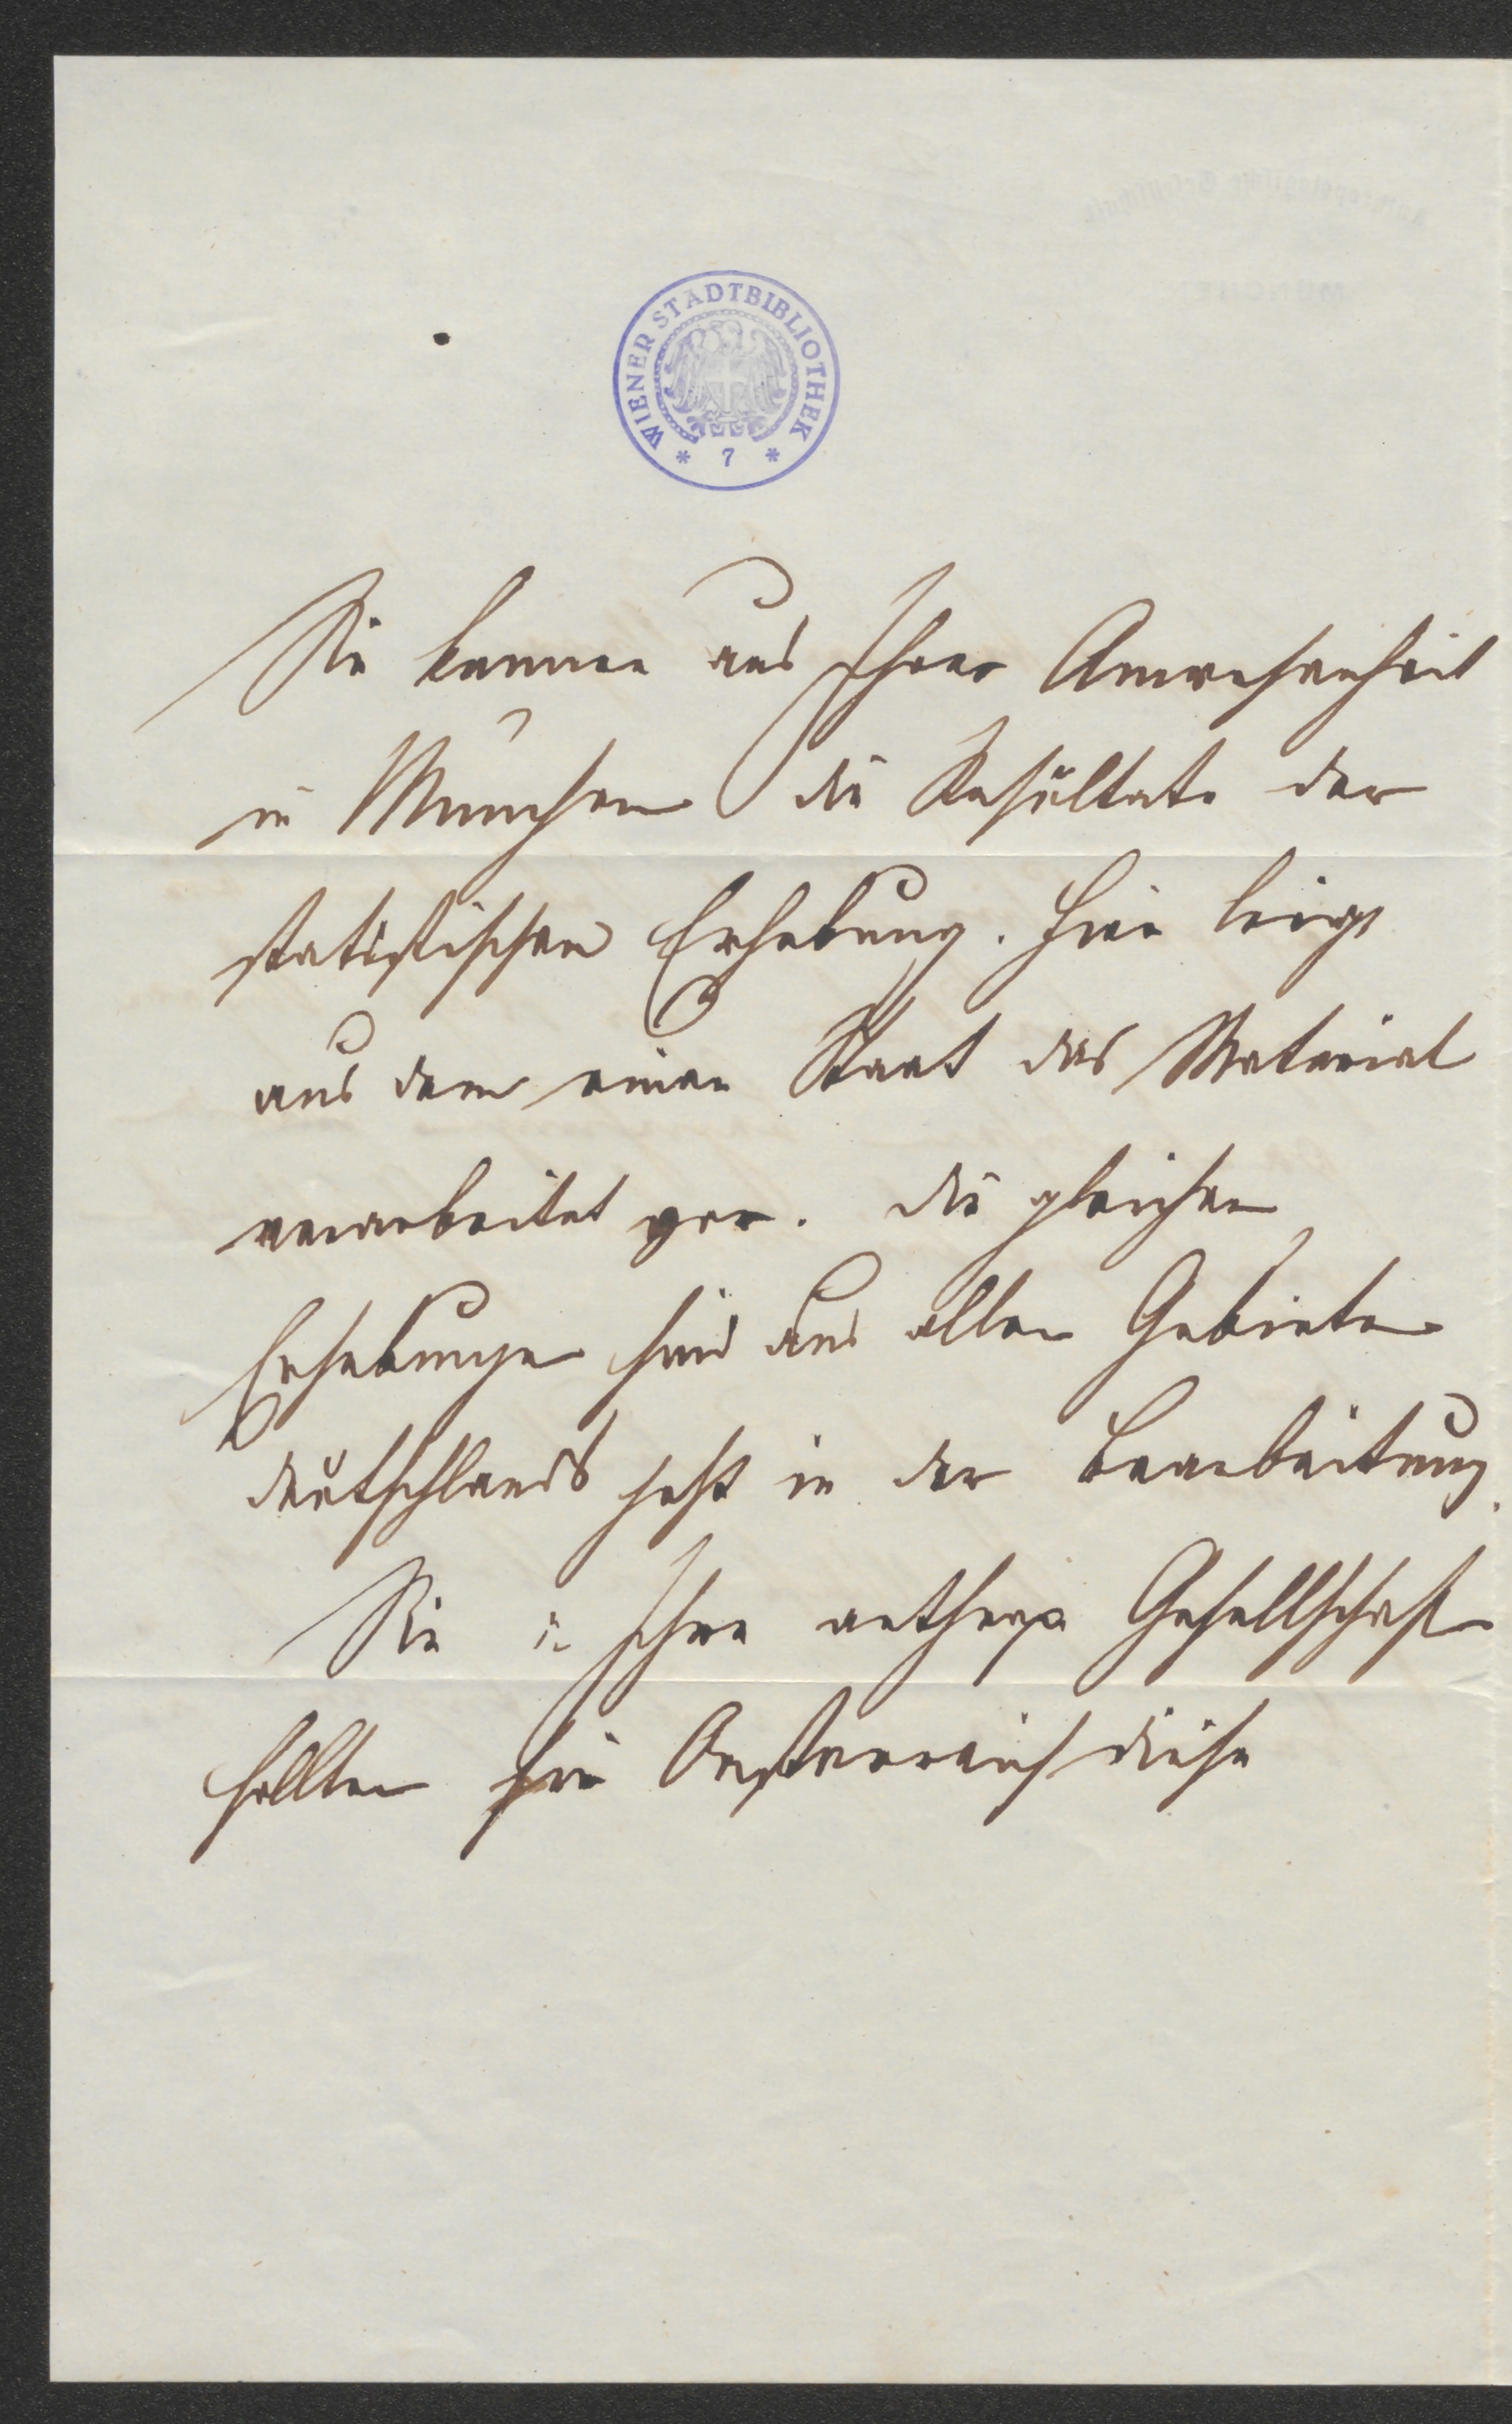 WIENER STADTBIBLIOTHEK
* 7 *
Sie kennen aus Ihrer Anwesenheit
in München die Resultate der
statistischen Erhebung. Hier liegt
aus dem einen Staat das Material
verarbeitet vor. Die gleichen
Erhebungen sind aus allen Gebieten
Deutschlands jetzt in der Bearbeitung.
Sie u Ihre anthrop Gesellschaft
sollten für Oesterreich diese